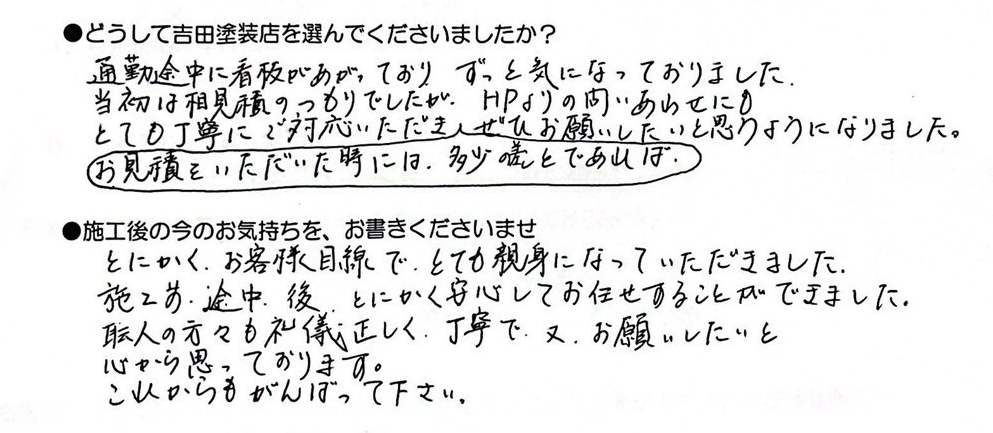 ●どうして吉田塗装店を選んでくださいましたか？
通勤途中に看板があがっており ずっと気になっておりました.
当初は相見積のつもりでしたが. HPよりの問いあわせにも
とても丁寧にご対応いただき、ぜひお願いしたいと思うようになりました。
お見積をいただいた時には. 多少の差とであれば.
●施工後の今のお気持ちを、お書きくださいませ
とにかく. お客様目線で. とても親身になっていただきました.
施工前. 途中. 後. とにかく安心してお任せすることができました。
職人の方々も礼儀正しく. 丁寧で. 又. お願いしたいと
心から思っております。
これからもがんばって下さい。